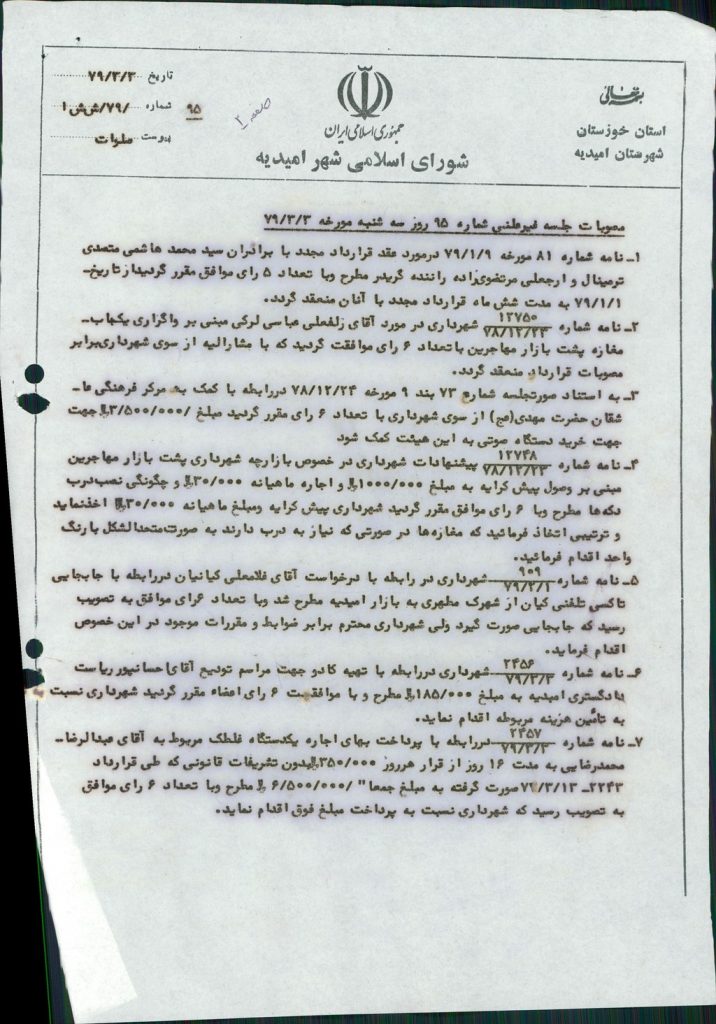 بسمه تعالی
استان خوزستان
شهرستان امیدیه
جمهوری اسلامی ایران
شورای اسلامی شهر امیدیه
صفحه ۲
تاریخ ۷۹/۳/۳
شماره ۹۵ /۷۹/ش ش ا
پیوست صلوات
مصوبات جلسه غیرعلنی شماره ۹۵ روز سه شنبه مورخه ۷۹/۳/۳
۱ـ نامه شماره ۸۱ مورخه ۷۹/۱/۹ درمورد عقد قرارداد مجدد با برادران سید محمد هاشمی متصدی
ترمینال و ارجعلی مرتضوی‌زاده راننده گریدر مطرح وبا تعداد ۵ رای موافق مقرر گردید از تاریخ ـ
۷۹/۱/۱ به مدت شش ماه قرارداد مجدد با آنان منعقد گردد.
۲ـ نامه شماره ۱۲۷۵۰ / ۷۸/۱۲/۲۳ شهرداری در مورد آقای زلفعلی عباسی لرکی مبنی بر واگزاری یکباب ـ
مغازه پشت بازار مهاجرین با تعداد ۶ رای موافقت گردید که با مشارالیه از سوی شهرداری برابر
مصوبات قرارداد منعقد گردد.
۳ـ به استناد صورتجلسه شماره ۷۳ بند ۹ مورخه ۷۸/۱۲/۲۴ دررابطه با کمک به مرکز فرهنگی عا ـ
شقان حضرت مهدی(عج) از سوی شهرداری با تعداد ۶ رای مقرر گردید مبلغ /۳/۵۰۰/۰۰۰ جهت
جهت خرید دستگاه صوتی به این هیئت کمک شود
۴ـ نامه شماره ۱۲۷۴۸ / ۷۸/۱۲/۲۳ پیشنهادات شهرداری در خصوص بازارچه شهرداری پشت بازار مهاجرین
مبنی بر وصول پیش کرایه به مبلغ ۱۰۰۰/۰۰۰ ریال و اجاره ماهیانه ۳۰/۰۰۰ ریال و چگونگی نصب درب
دکه‌ها مطرح وبا ۶ رای موافق مقرر گردید شهرداری پیش کرایه ومبلغ ماهیانه ۳۰/۰۰۰ ریال اخذ نماید
و ترتیبی اتخاذ فرمائید که مغازه‌ها در صورتی که نیاز به درب دارند به صورت متحدالشکل با رنگ
واحد اقدام فرمائید.
۵ـ نامه شماره ۹۰۹ / ۷۹/۲/۱ شهرداری در رابطه با درخواست آقای غلامعلی کیانیان دررابطه با جابجایی
تاکسی تلفنی کیان از شهرک مطهری به بازار امیدیه مطرح شد وبا تعداد ۶ رای موافق به تصویب
رسید که جابجایی صورت گیرد ولی شهرداری محترم برابر ضوابط و مقررات موجود در این خصوص
اقدام فرماید.
۶ـ نامه شماره ۲۴۵۶ / ۷۹/۳/۳ شهرداری دررابطه با تهیه کادو جهت مراسم تودیع آقای احسانپور ریاست
دادگستری امیدیه به مبلغ ۱۸۵/۰۰۰ ریال مطرح و با موافقت ۶ رای اعضاء مقرر گردید شهرداری نسبت به
به تأمین هزینه مربوطه اقدام نماید.
۷ـ نامه شماره ۲۴۵۷ / ۷۹/۳/۳ دررابطه با پرداخت بهای اجاره یکدستگاه غلطک مربوط به آقای عبدالرضا ـ
محمدرضایی به مدت ۱۶ روز از قرار هرروز ۳۵۰/۰۰۰ ریال بدون تشریفات قانونی که طی قرارداد
۲۲۴۳ ـ ۷۹/۳/۱۳ صورت گرفته به مبلغ جمعا" /۶/۵۰۰/۰۰۰ ریال مطرح وبا تعداد ۶ رای موافق
به تصویب رسید که شهرداری نسبت به پرداخت مبلغ فوق اقدام نماید.